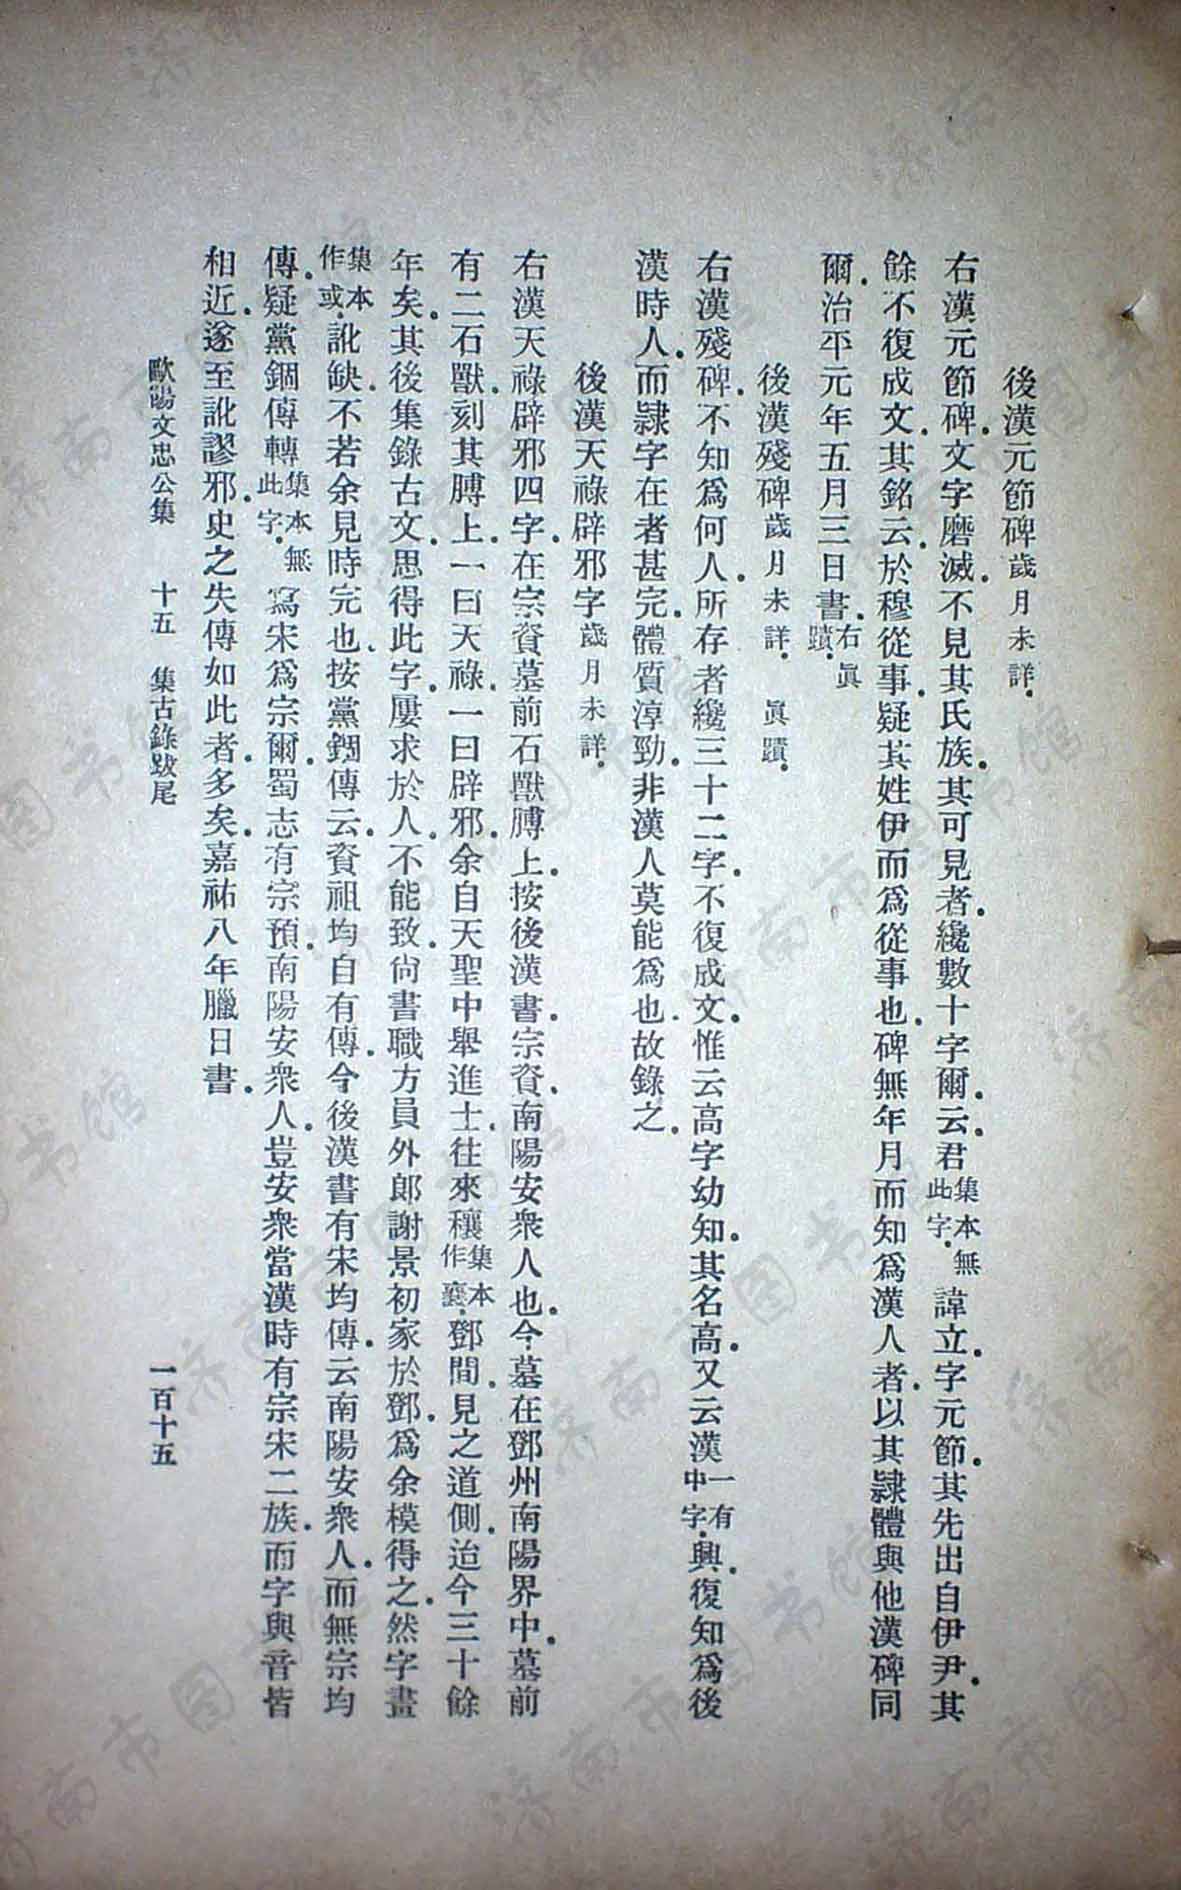 後漢元節碑歲月未詳.
右漢元節碑.文字磨滅.不見其氏族.其可見者.纔數十字爾.云.君集本無此字.諱立.字元節.其先出自伊尹.其
餘不復成文.其銘云.於穆從事.疑其姓伊而爲從事也.碑無年月而知爲漢人者.以其隸體與他漢碑同
爾.治平元年五月三日書.右眞蹟.
後漢殘碑歲月未詳. 眞蹟.
右漢殘碑.不知爲何人.所存者纔三十二字.不復成文.惟云高字幼知.其名高.又云漢一有中字.興.復知爲後
漢時人.而隸字在者甚完.體質淳勁.非漢人莫能爲也.故錄之.
後漢天祿辟邪字歲月未詳.
右漢天祿辟邪四字.在宗資墓前石獸膊上.按後漢書.宗資.南陽安衆人也.今墓在鄧州南陽界中.墓前
有二石獸.刻其膊上.一曰天祿.一曰辟邪.余自天聖中舉進士.往來穰集本作襄.鄧間.見之道側.迨今三十餘
年矣.其後集錄古文.思得此字.屢求於人.不能致.尙書職方員外郞謝景初家於鄧.爲余模得之.然字畫
集本作或.訛缺.不若余見時完也.按黨錮傳云.資祖均自有傳.今後漢書有宋均傳.云南陽安衆人.而無宗均
傳.疑黨錮傳轉集本無此字.寫宋爲宗爾.蜀志有宗預.南陽安衆人.豈安衆當漢時有宗宋二族.而字與音皆
相近.遂至訛謬邪.史之失傳如此者.多矣.嘉祐八年臘日書.
歐陽文忠公集 十五 集古錄跋尾 一百十五
济南市图书馆